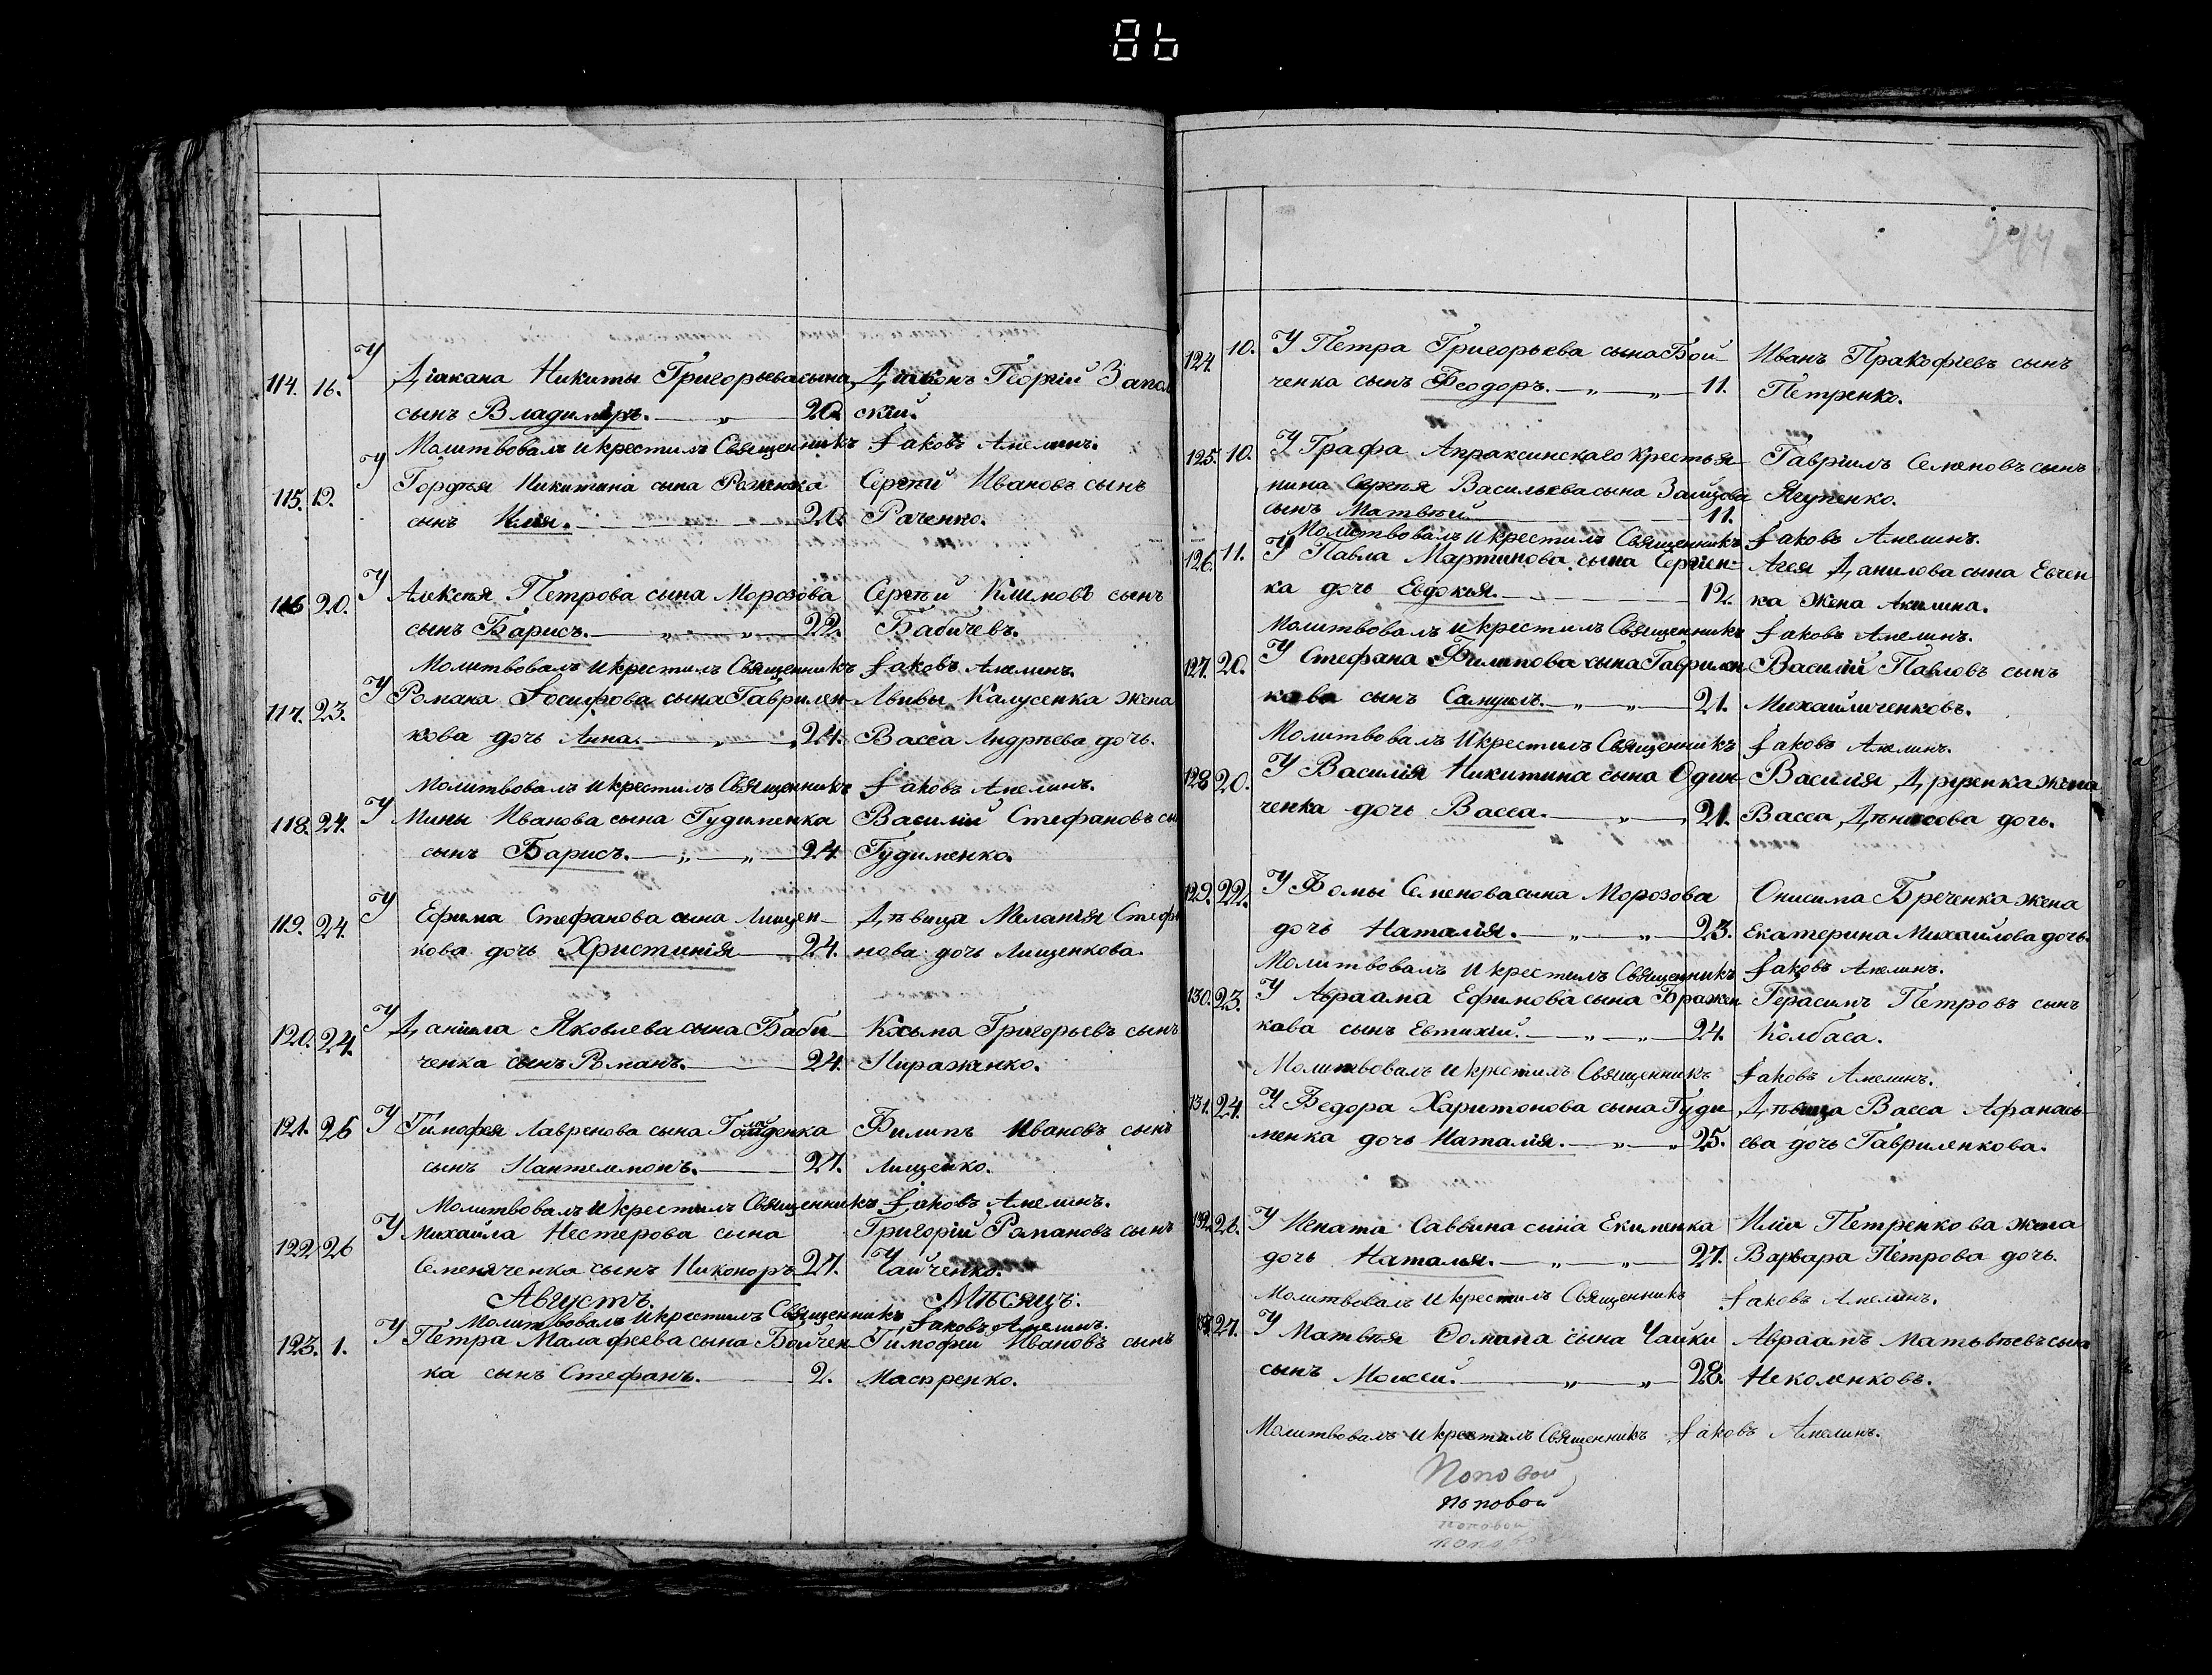 86
114. 16. У Діакана Никиты Григорьева сына Діаконъ Георгій Запол
сынъ Владимиръ. 20. скій.
Молитвовалъ и крестилъ Священникъ Іаковъ Амелинъ.
115. 19. У Гордѣя Никитина сына Роженка Сергѣй Ивановъ сынъ
сынъ Илія. 20. Раченко.
116 20. У Алексѣя Петрова сына Морозова Сергѣй Климовъ сынъ
сынъ Барисъ. 22. Бабичевъ.
Молитвовалъ и крестилъ Священникъ Іаковъ Амелинъ.
117. 23. У Романа Іосифова сына Гаврилен- Ливы Калусенка жена
кова дочь Анна. 24. Васса Андрѣева дочь.
Молитвовалъ и крестилъ Священникъ Іаковъ Амелинъ.
118. 24. У Мины Иванова сына Гудименка Василій Стефановъ сы
сынъ Барисъ. 24. Гудименко.
119. 24. У Ефима Стефанова сына Лищен- Дѣвица Меланія Стефа
кова дочь Христинія 24. нова дочь Лищенкова.
120. 24. У Даніила Яковлева сына Баби- Козьма Григорьевъ сынъ
ченка сынъ Романъ. 24. Мироженко.
121. 26 У Тимофея Лавренова сына Гайденка Филипъ Ивановъ сынъ
сынъ Пантелемонъ. 27. Лищенко.
Молитвовалъ и крестилъ Священникъ Іаковъ Амелинъ.
122 26 У Михайла Нестерова сына Григорій Романовъ сынъ
Семеняченка сынъ Никоноръ 27. Чайченко.
Августъ. Мѣсяцъ.
Молитвовалъ и крестилъ Священникъ Іаковъ Амелинъ.
123. 1. У Петра Малафеева сына Бойчен- Тимофей Ивановъ сынъ
ка сынъ Стефанъ. 2. Маспренко.
244
124. 10. У Петра Григорьева сына Бой- Иванъ Пракофіевъ сынъ
ченка сынъ Феодоръ. 11. Петренко.
125. 10. У Графа Апраксинскаго крестья- Гавріилъ Семеновъ сынъ
нина Сергѣя Васильева сына Зайцова Ягупенко.
сынъ Матвѣй. 11.
Молитвовалъ и крестилъ Священникъ Іаковъ Амелинъ.
126. 11. У Павла Мартинова сына Сергіен- Агея Данилова сына Евчен
ка дочь Евдокія. 12. ка жена Акилина.
Молитвовалъ и крестилъ Священникъ Іаковъ Амелинъ.
127. 20. У Стефана Филипова сына Гаврилен Василій Павловъ сынъ
кова сынъ Самуилъ. 21. Михайличенковъ.
Молитвовалъ и крестилъ Священникъ Іаковъ Амелинъ.
128 20. У Василія Никитина сына Один- Василія Друзенка жена
ченка дочь Васса. 21. Васса Дѣнисова дочь.
129. 22. У Фомы Семенова сына Морозова Онисима Бреченка жена
дочь Наталія. 23. Екатерина Михайлова дочь.
Молитвовалъ и крестилъ Священникъ Іаковъ Амелинъ.
130. 23. У Авраама Ефимова сына Бражен Герасимъ Петровъ сынъ
кава сынъ Евтихій. 24. Колбаса.
Молитвовалъ и крестилъ Священникъ Іаковъ Амелинъ.
131. 24. У Федора Харитонова сына Гуди- Дѣвица Васса Афанась-
менка дочь Наталія. 25. ева дочь Гавриленкова.
132. 26. У Игната Саввина сына Екименка Иліи Петренкова жена
дочь Наталія. 27. Варвара Петрова дочь.
Молитвовалъ и крестилъ Священникъ Іаковъ Амелинъ.
27. У Матвѣя Фомана сына Чайки Авраамъ Матьвѣевъ сынъ
сынъ Моисей. 28. Неколенковъ.
Молитвовалъ и крестилъ Священникъ Іаковъ Амелинъ.
Поповой
поповой
поповой